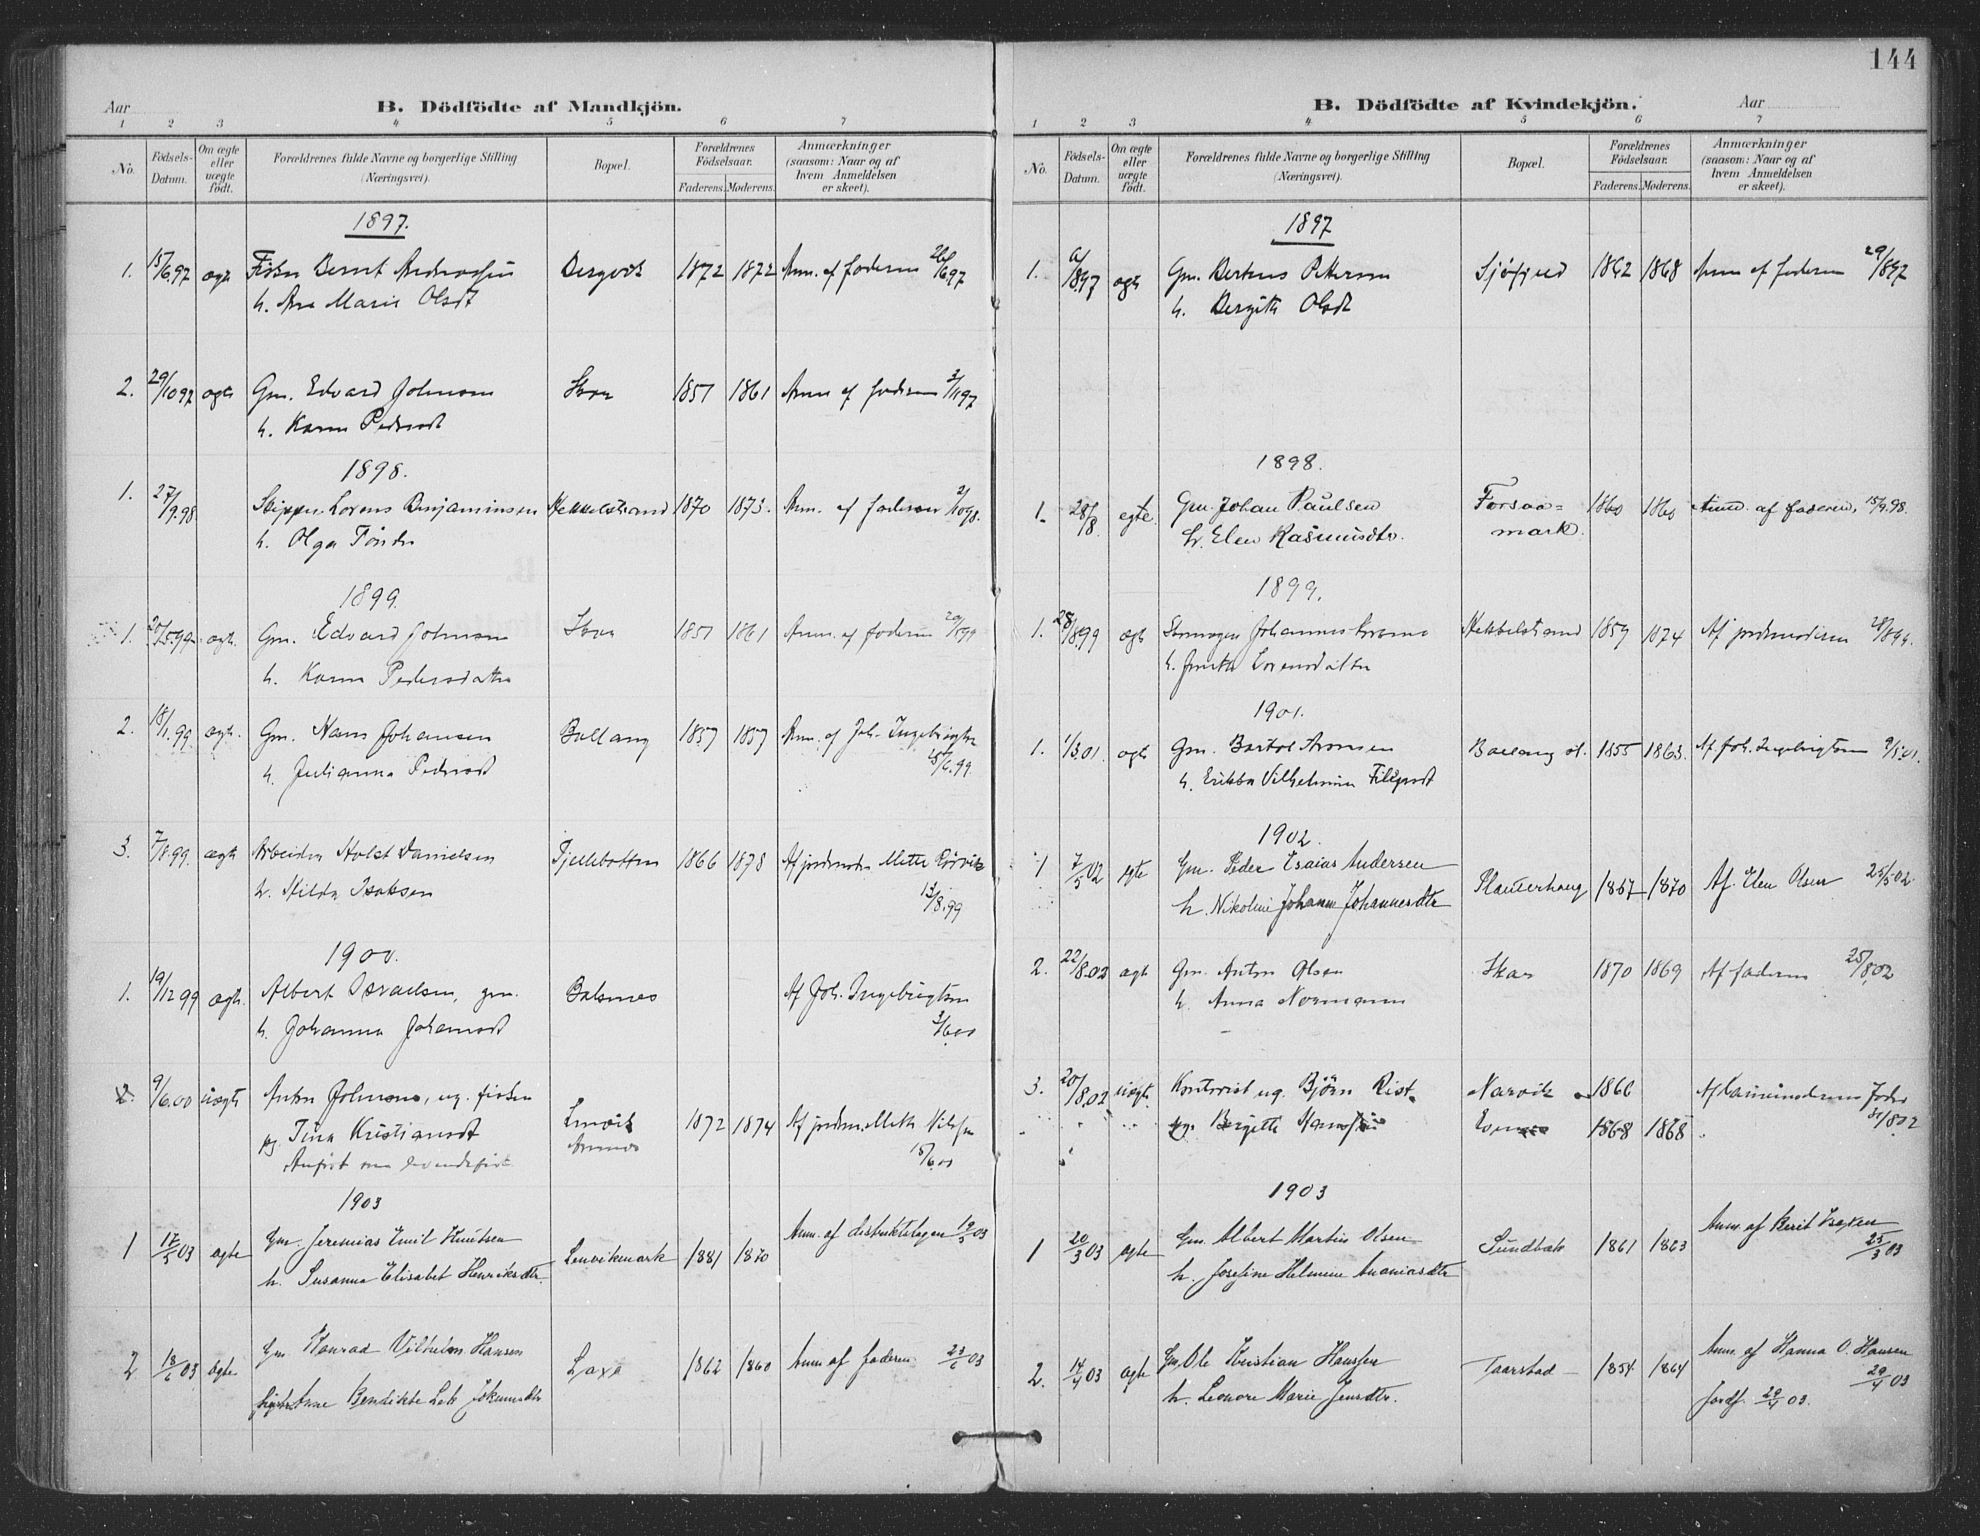 144
Aar
B. Dödfödte af Mandkjön.
1 2 3 4 5 6 7
No.
Födsels-Datum.
Om ægte eller uægte födt.
Forældrenes fulde Navne og borgerlige Stilling (Næringsvei).
Bopæl.
Forældrenes Födselsaar.
Faderens. Moderens.
Anmærkninger (saasom: Naar og af hvem Anmeldelsen er skeet).
1897.
1. 15/6 97 ægte Fisker Bernt Andreassen 1872 1872 Anm. af faderen 26/6 97
h. Ane Marie Olsdt
2. 29/10 97 ægte Gm. Edvard Johnsen Skar 1851 1861 Anm af faderen 3/11 97
h. Karen Pedersdt
1898.
1. 27/9.98 Skipper Lorens Benjaminsen Hekkelstrand 1870 1873. Anm. af faderen 2/10 98.
h. Olga
1899.
1. ægte. Gm. Edvard Johnsen Skar 1851 1861 Anm. af faderen
h. Karen Pedersdatter
2. 18/1.99 ægte. Gm. Hans Johansen Ballang 1857 1857 Anm. af Joh. Ingebrigtsen
h. Julianna Pedersdt 15/6.99
3. 7/8.99. ægte Arbeider Holst Danielsen Fjellbotten 1866 1878 Af jordemoder Mette Rörvik
h. Hilda Isaksen 13/8.99
1900.
1. 19/12 99 ægte. Albert Israelsen, gm. Balsnes Af Joh. Ingebrigtsen
h. Johanna Johansdt 3/6.00
2. 9/6.00 uægte Anton Johnsen, ug. fisker 1872 1874 Af jordem. Mette Nilsen
pg Tina Kristiansdt 15/6.00
1903
1 17/5 03 ægte Gm. Jeremias Emil Knutsen Lenvikmark 1881 1870 Anm. af distriktslægen 19/5 03
h. Susanna Elisabet Henriksdtr.
2 18/6 03 ægte Gm Konrad Vilhelm Hansen Laxå 1862 1860 Anm af faderen 23/6 03
Anne Bendikte
B. Dödfödte af Kvindekjön.
Aar
1 2 3 4 5 6 7
No.
Födsels-Datum.
Om ægte eller uægte födt.
Forældrenes fulde Navne og borgerlige Stilling (Næringsvei).
Bopæl.
Forældrenes Födselsaar.
Faderens. Moderens.
Anmærkninger (saasom: Naar og af hvem Anmeldelsen er skeet).
1897
1. 6/8 97 ægte Gm. Petersen 1868 Anm af faderen 29/8 97
h. Bergitte Olsdt
1898.
1. 28/8. egte. Gm. Johan Paulsen Forsaa= 1860 1860 Anm. af faderen, 15/9.98.
h. Elen Rasmusdtr. mark.
1899.
1. 28/8.99 ægte Johannes Hekkelstrand 1859 1874 Af jordemoderen 28/8 99.
h. Lorensdatter
1901.
1. 1/3.01. ægte Gm. Bartol Aronsen 1855 1863. Af Joh. Ingebrigtsen
h. Erikka Vilhelmine
1902.
1 7/5 02 egte Gm. Peder Esaias Andersen 1867 1870 Af. Elen Olsen 25/5 02.
h. Nikoline Johanna Johannesdtr
2. 22/8.02 ægte Gm. Anton Olsen Skar 1870 1869 Af faderen 25/8.02
h. Anna Normann
3. 20/8.02 uægte. Kontorist ug. Björn Rist. Narvik 1860 31/8 02
pg. Bergitte 1868 1868
1903
1 20/3 03 ægte Gm. Albert Martin Olsen Sundbæk 1861 1863 Anm. af Berit Isaksen 25/3 03
h. Josefine Helmine Ananiasdtr
2. 14/4 03 ægte Gm. Ole Kristian Hanssen Taarstad 1854 1864 Anm. af Hanna O. Hansen 29/4 03
h. Leonore Marie Jensdtr. Jordf. 29/4 03.